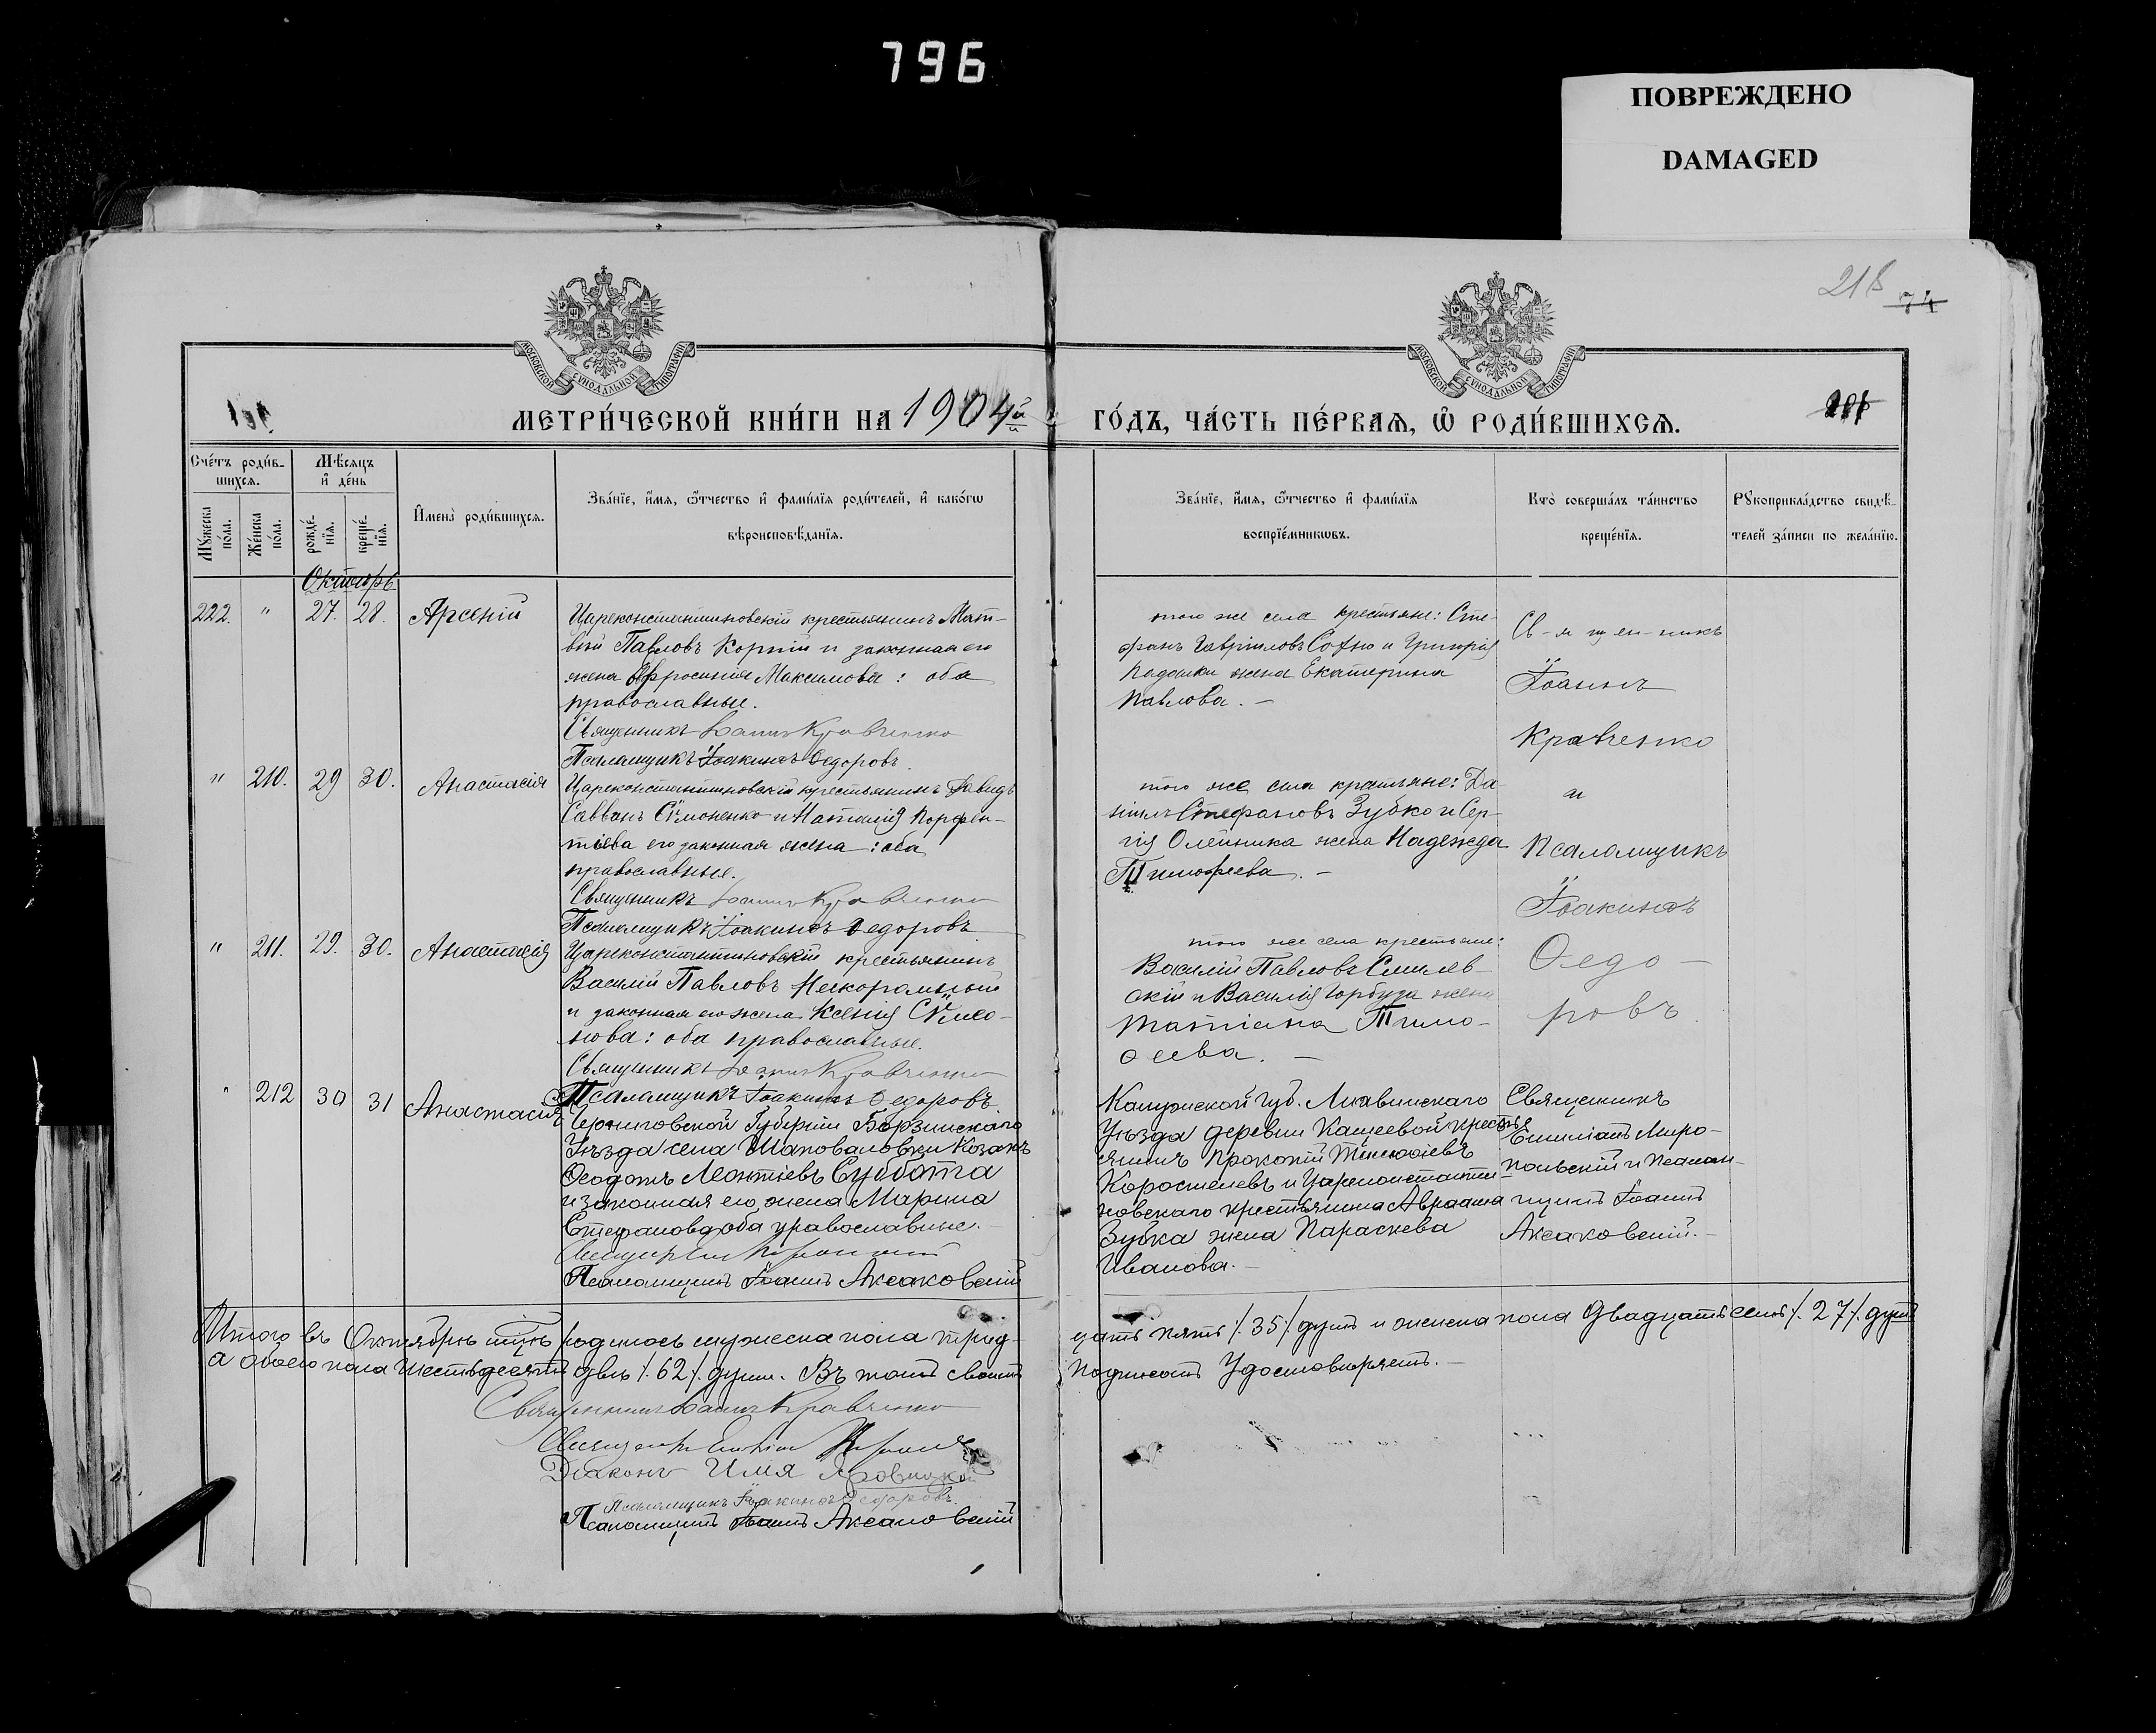 796
ПОВРЕЖДЕНО
DAMAGED
218 74
МОСКОВСКОЙ СѴНОДАЛЬНОЙ ТИПОГРАФІИ
МОСКОВСКОЙ СѴНОДАЛЬНОЙ ТИПОГРАФІИ
МЕТРИ́ЧЕСКОЙ КНИ́ГИ НА 1904й
ГО́ДЪ, ЧА́СТЬ ПЕ́РВАѦ, Ѡ҆ РОДИ́ВШИХСѦ.
Сче́тъ роди́в-
шихсѧ.
Мꙋ́жеска по́ла.
Же́нска по́ла.
Мѣ́сѧцъ
и҆ де́нь
рожде́-
нїѧ.
креще́-
нїѧ.
И҆мена̀ роди́вшихсѧ.
Зва́нїе, и҆́мѧ, ѻ҆́тчество и҆ фами́лїѧ роди́телей, и҆ како́гѡ
вѣроисповѣ́данїѧ.
Зва́нїе, и҆́мѧ, ѻ҆́тчество и҆ фами́лїѧ
воспрїе́мникѡвъ.
Кто̀ соверша́лъ та́инство
креще́нїѧ.
Рꙋкоприкла́дство свидѣ́-
телей за́писи по жела́нїю.
Октябрь
222. " 27. 28. Арсеній
Цареконстантиновскій крестьянинъ Мат-
вѣй Павловъ Коргій и законная его
жена Ефросинія Максимова: оба
православные.
Священникъ Іоаннъ Кравченко
Псаломщикъ Іоакимъ Ѳедоровъ.
того же села крестьяне: Сте-
фанъ Гавріиловъ и Григорія
жена Екатерина
Павлова. —
Св-я щ ен-никъ
Іоаннъ
Кравченко
и
Псаломщикъ
Іоакимъ
Ѳедо-
ровъ
" 210. 29 30. Анастасія
Цареконстантиновскій крестьянинъ Давидъ
Саввинъ Сѵмоненко и Наталія Порфен-
тіева его законная жена: оба
православные.
Священникъ Іоаннъ Кравченко
Псаломщикъ Іоакимъ Ѳедоровъ
того же села крестьяне: Да-
ніилъ Стефановъ Зубко и Сер-
гія Олейника жена Надежда
Тимофеева. —
" 211. 29. 30. Анастасія
Цареконстантиновскій крестьянинъ
Василій Павловъ
и законная его жена Ксенія Сѵмео-
нова: оба православные.
Священникъ Іоаннъ Кравченко
Псаломщикъ Іоакимъ Ѳедоровъ.
того же села крестьяне:
Василій Павловъ Смилев-
скій и Василія Горбуза жена
Татіана Тимо-
ѳеева. —
" 212 30 31 Анастасія
Черниговской Губерніи Борзинскаго
Уѣзда села Шаповаловки Козакъ
Ѳеодотъ Леонтіевъ Суббота
и законная его жена Марина
Стефанова, оба православные. —
Псаломщикъ Іоаннъ Аксаковскій
Калужской губ.
Уѣзда деревни Кащеевой кресть-
янинъ Прокопій
Коростелевъ и Цареконстанти-
новскаго крестьянина Авраама
Зубка жена Параскева
Иванова. —
Священникъ
Миро-
польскій и Псалом-
щикъ Іоаннъ
Аксаковскій. —
Итого въ Октябрѣ мцѣ родилось мужеска пола трид-
цать пять /.35/. душъ и женска пола двадцать семь /.27/. душъ
а обоего пола шестьдесятъ двѣ /.62/. души. Въ томъ своимъ
подписомъ удостовѣряемъ. —
Священникъ Іоаннъ Кравченко
Діаконъ Илія
Псаломщикъ Іоакимъ Ѳедоровъ
Псаломщикъ Іоаннъ Аксаковскій